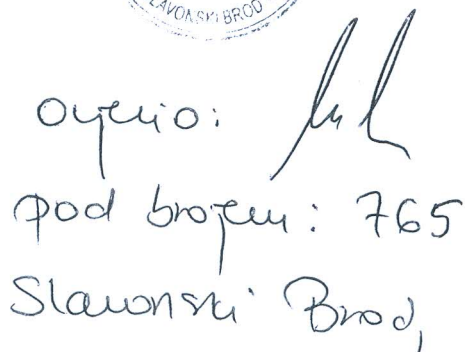 SLAVONSKI BROD
Ocjenio:
pod brojem: 765
Slavonski Brod,